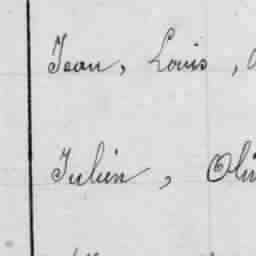 Jean, Louis,
Julien,